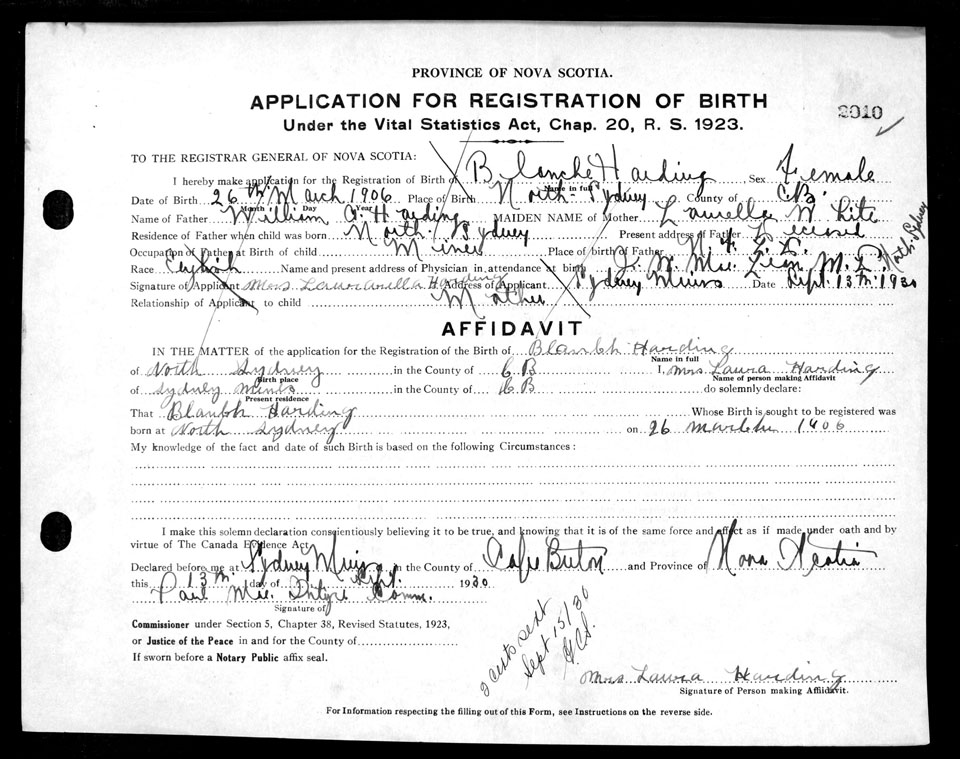 PROVINCE OF NOVA SCOTIA.
APPLICATION FOR REGISTRATION OF BIRTH
2010
Under the Vital Statistics Act, Chap. 20, R. S. 1923.
TO THE REGISTRAR GENERAL OF NOVA SCOTIA:
I hereby make application for the Registration of Birth of Blanche Harding Sex Female
Name in full
Date of Birth 26th March 1906 Place of Birth North Sydney County of CB.
Month Day Year
Name of Father William A. Harding MAIDEN NAME of Mother Laurella White
Residence of Father when child was born North Sydney Present address of Father Deceased
Occupation of Father at Birth of child Miner Place of birth of Father
Race English Name and present address of Physician in attendance at birth M. D. North Sydney
Signature of Applicant Mrs. Harding Address of Applicant Sydney Mines Date Sept. 13th. 1930
Relationship of Applicant to child Mother
AFFIDAVIT
IN THE MATTER of the application for the Registration of the Birth of Blanbh Harding
Name in full
of North Sydney in the County of C B I, Mrs Laura Harding
Birth place Name of person making Affidavit
of Sydney Mines in the County of C B do solemnly declare:
Present residence
That Blanbh Harding Whose Birth is sought to be registered was
born at North Sydney on 26 1906
My knowledge of the fact and date of such Birth is based on the following Circumstances:
I make this solemn declaration conscientiously believing it to be true, and knowing that it is of the same force and effect as if made under oath and by
virtue of The Canada Evidence Act.
Declared before me at Sydney Mines in the County of Cape Breton and Province of Nova Scotia
this 13th. day of Sept. 1930
Paul Comm.
Signature of
Commissioner under Section 5, Chapter 38, Revised Statutes, 1923,
or Justice of the Peace in and for the County of
If sworn before a Notary Public affix seal.
2 certs sent
Sept 15/30
Mrs Laura Harding
Signature of Person making Affidavit.
For Information respecting the filling out of this Form, see Instructions on the reverse side.